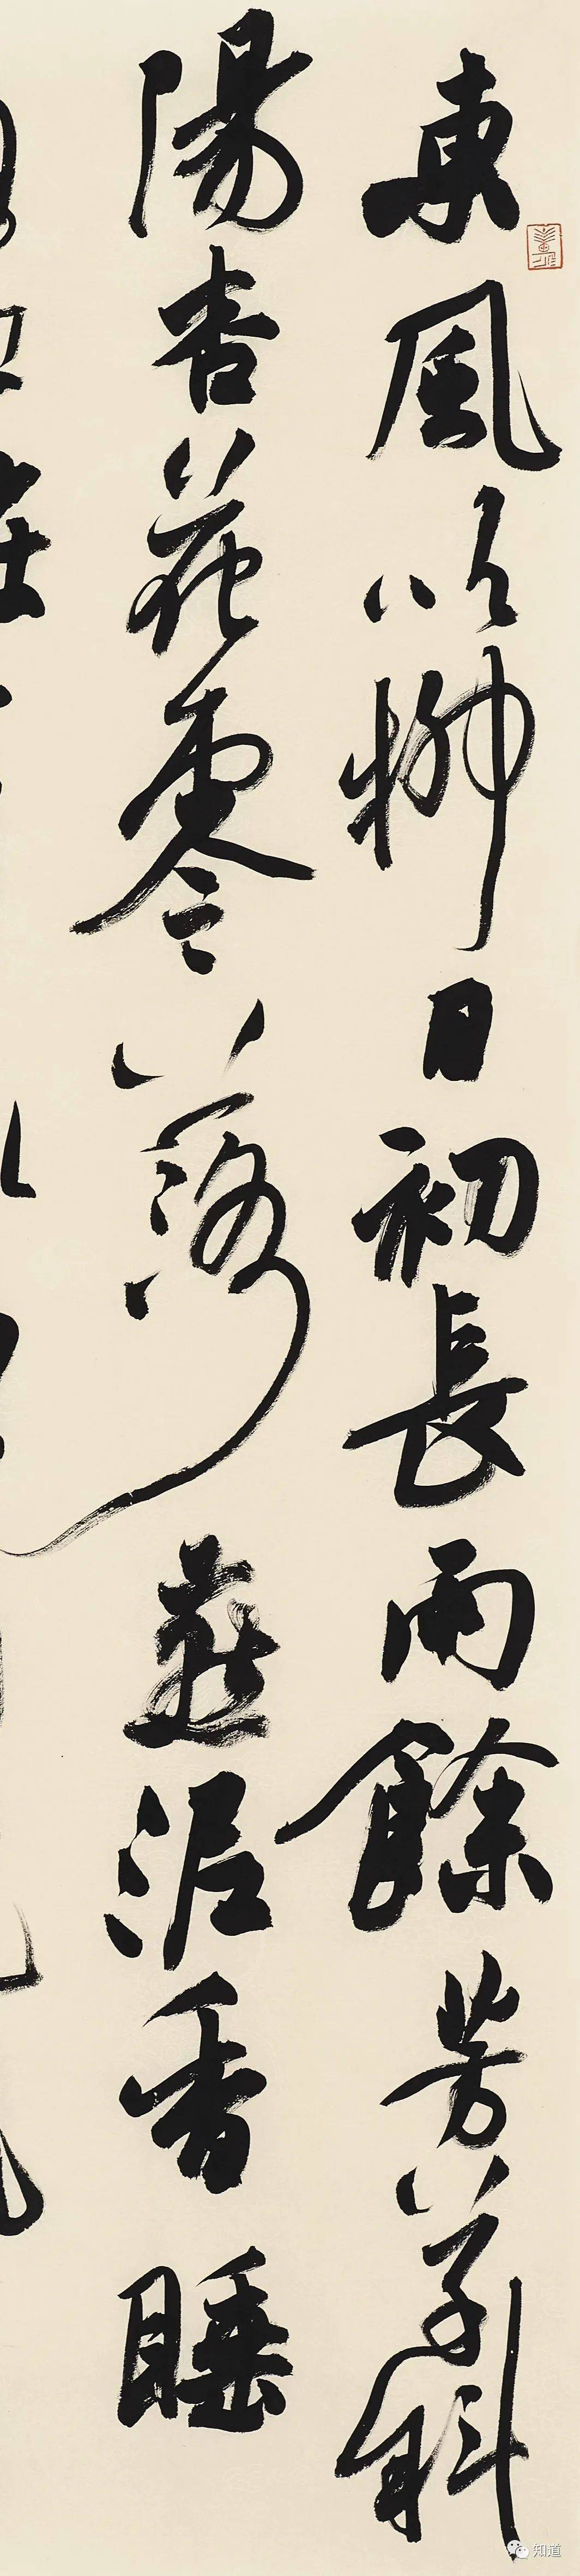 東風吹柳日初長雨餘芳草斜
陽杏花零落燕泥香睡
知道